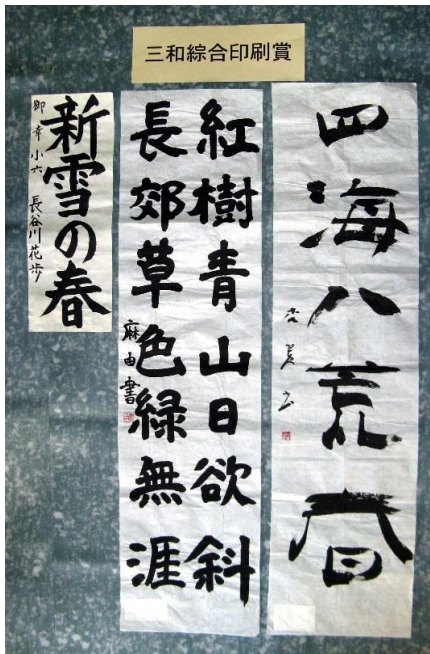 三和綜合印刷賞
四海八荒春
紅樹青山日欲斜
長郊草色緑無涯
麻由書
新雪の春
御幸小六 長谷川花歩